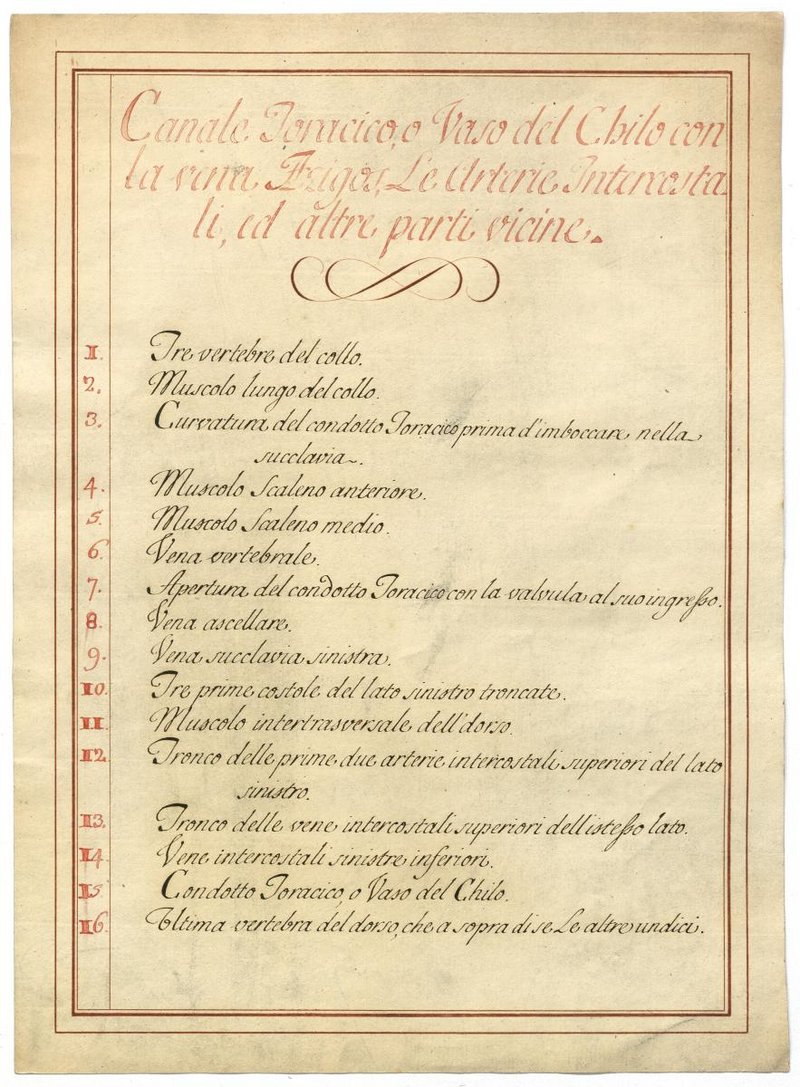 Canale Toracico, o Vaso del Chilo con
la vena Azigos, Le Arterie Intercosta
li, ed altre parti vicine.
1. Tre vertebre del collo.
2. Muscolo lungo del collo.
3. Curvatura del condotto Toracico prima d'imboccare nella
succlavia.
4. Muscolo Scaleno anteriore.
5. Muscolo Scaleno medio.
6. Vena vertebrale.
7. Apertura del condotto Toracico con la valvula al suo ingresso.
8. Vena ascellare.
9. Vena succlavia sinistra.
10. Tre prime costole del lato sinistro troncate.
11. Muscolo intertrasversale dell'dorso.
12. Tronco delle prime due arterie intercostali superiori del lato
sinistro.
13. Tronco delle vene intercostali superiori dell istesso lato.
14. Vene intercostali sinistre inferiori.
15. Condotto Toracico, o Vaso del Chilo.
16. Ultima vertebra del dorso, che a sopra di se Le altre undici.